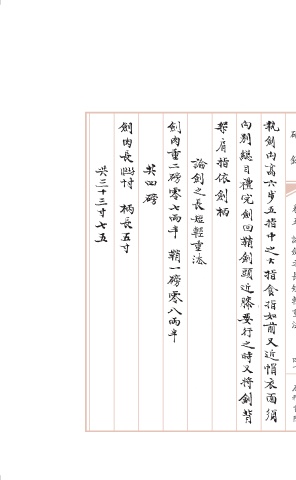 執劍向高六步五指中之大指食指如前又近帽衣面須
向別總目禮完劍回鞘劍頭近膝要行之時又將劍背
架肩指依劍柄
論劍之長短輕重法
劍肉重二磅零七兩半　鞘一磅零八兩半
共四磅
劍肉長　柄長五寸
共三十三寸七五
論劍之長短輕重法